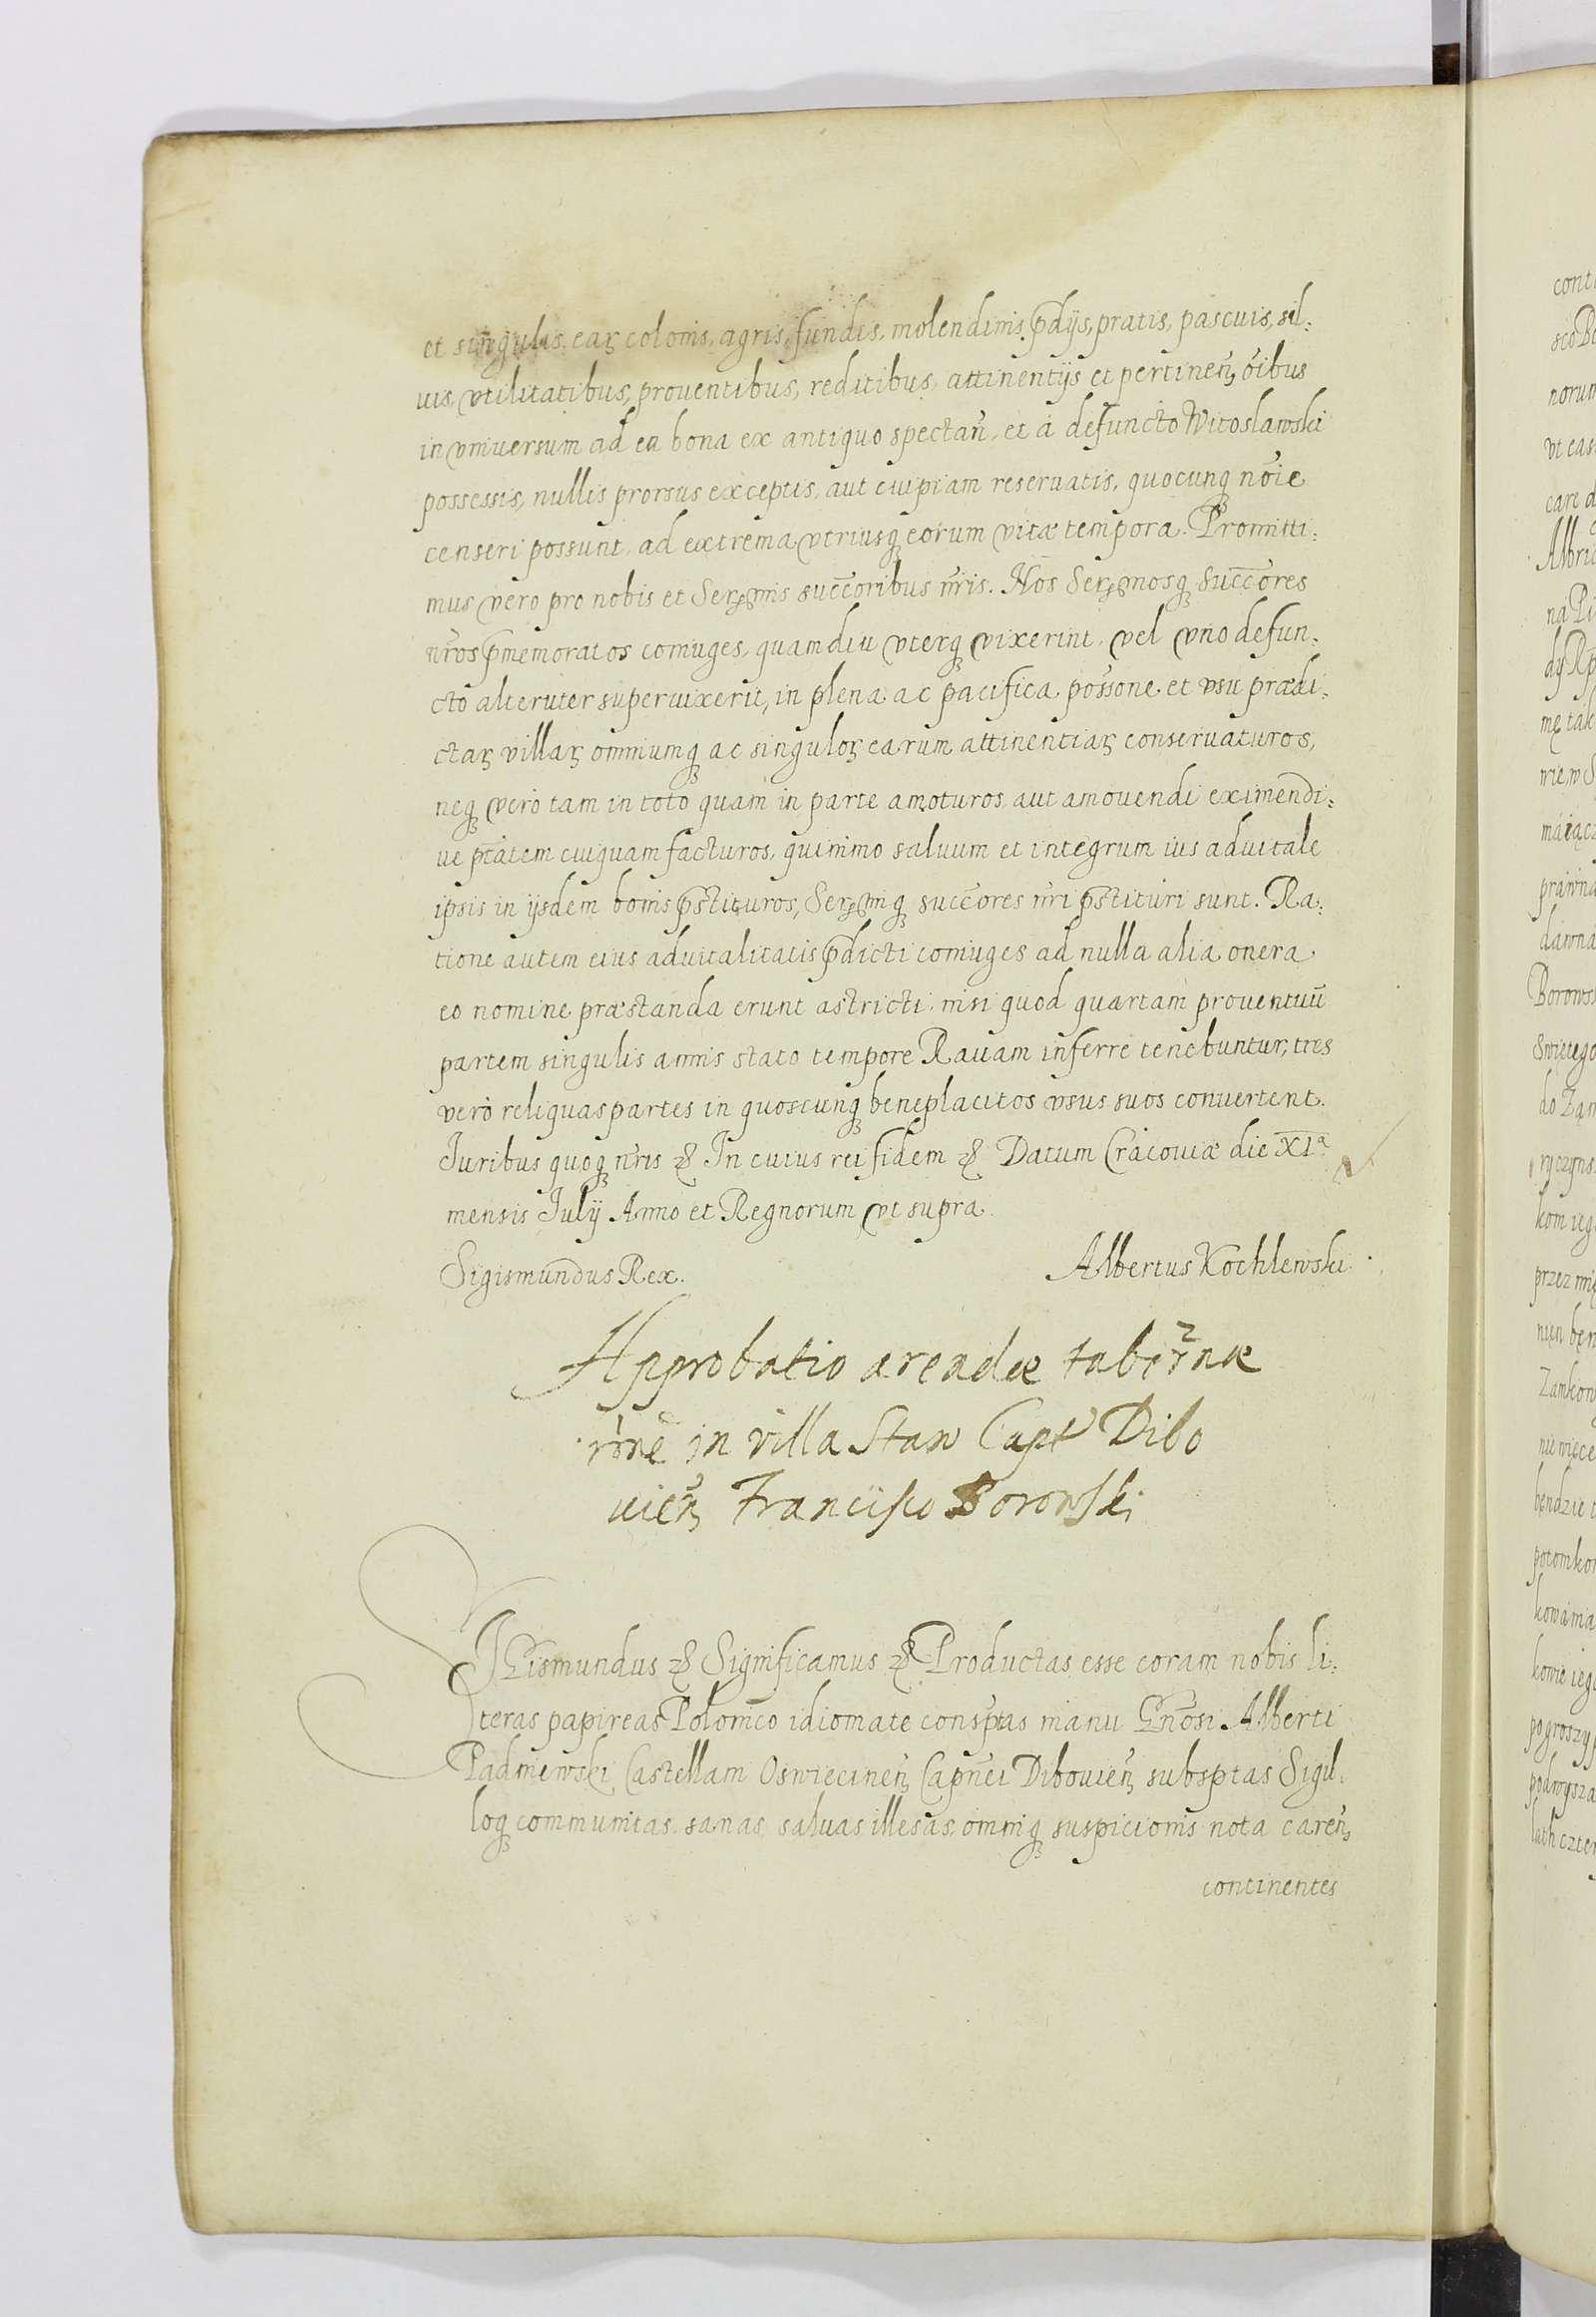 et singulis earꝫ colonis, agris, fundis, molendinis, p̄dijs, pratis, pascuis, sil:
uis, vtilitatibus, prouentibus, reditibus, attinentijs et pertineñ, õibus
in vniuersum ad ea bona ex antiquo spectañ, et à defuncto Witoslawski
possessis, nullis prorsus exceptis, aut cuipiam reseruatis, quocunqꝫ nõie
censeri possunt, ad extrema vtriusqꝫ eorum vitæ tempora. Promitti:
mus vero pro nobis et Serꝫmis succ̄oribus n̄ris. Nos Serꝫmosqꝫ succ̄ores
n̄ros p̄memoratos coniuges, quamdiu vterqꝫ vixerint, vel vno defun:
cto alteruter superuixerit, in plena ac pacifica poss̄one et vsu prædi:
ctarꝫ villarꝫ omniumqꝫ ac singulorꝫ earum attinentiarꝫ conseruaturos,
neqꝫ vero tam in toto quam in parte amoturos, aut amouendi eximendi:
ue p̄tatem cuiquam facturos, quinimo saluum et integrum ius aduitale
ipsis in ijsdem bonis p̄stituros, Serꝫmiqꝫ succ̄ores n̄ri p̄stituri sunt. Ra:
tione autem eius aduitalitatis p̄dicti coniuges ad nulla alia onera
eo nomine præstanda erunt astricti, nisi quod quartam prouentuū
partem singulis annis stato tempore Rauam inferre tenebuntur, tres
vero reliquas partes in quoscunqꝫ beneplacitos vsus suos conuertent.
Juribus quoqꝫ n̄ris &c In cuius rei fidem &c Datum Cracouiæ die XIᵃ
mensis Julij Anno et Regnorum vt supra.
Sigismundus Rex.
Albertus Kochlewski.
Approbatio arendæ tabernæ
in villa Staw Capt Dibo
uieñ Francisco Borowski
SIGismundus &c Significamus &c Productas esse coram nobis li:
teras papireas Polonico idiomate consp̄tas manu Gn̄osi Alberti
Padniewski Castellani Oswiecineñ, Capn̄ei Dibouieñ subsp̄tas Sigil:
loqꝫ communitas, sanas, saluas illesas, omniqꝫ suspicionis nota careñ,
continentes